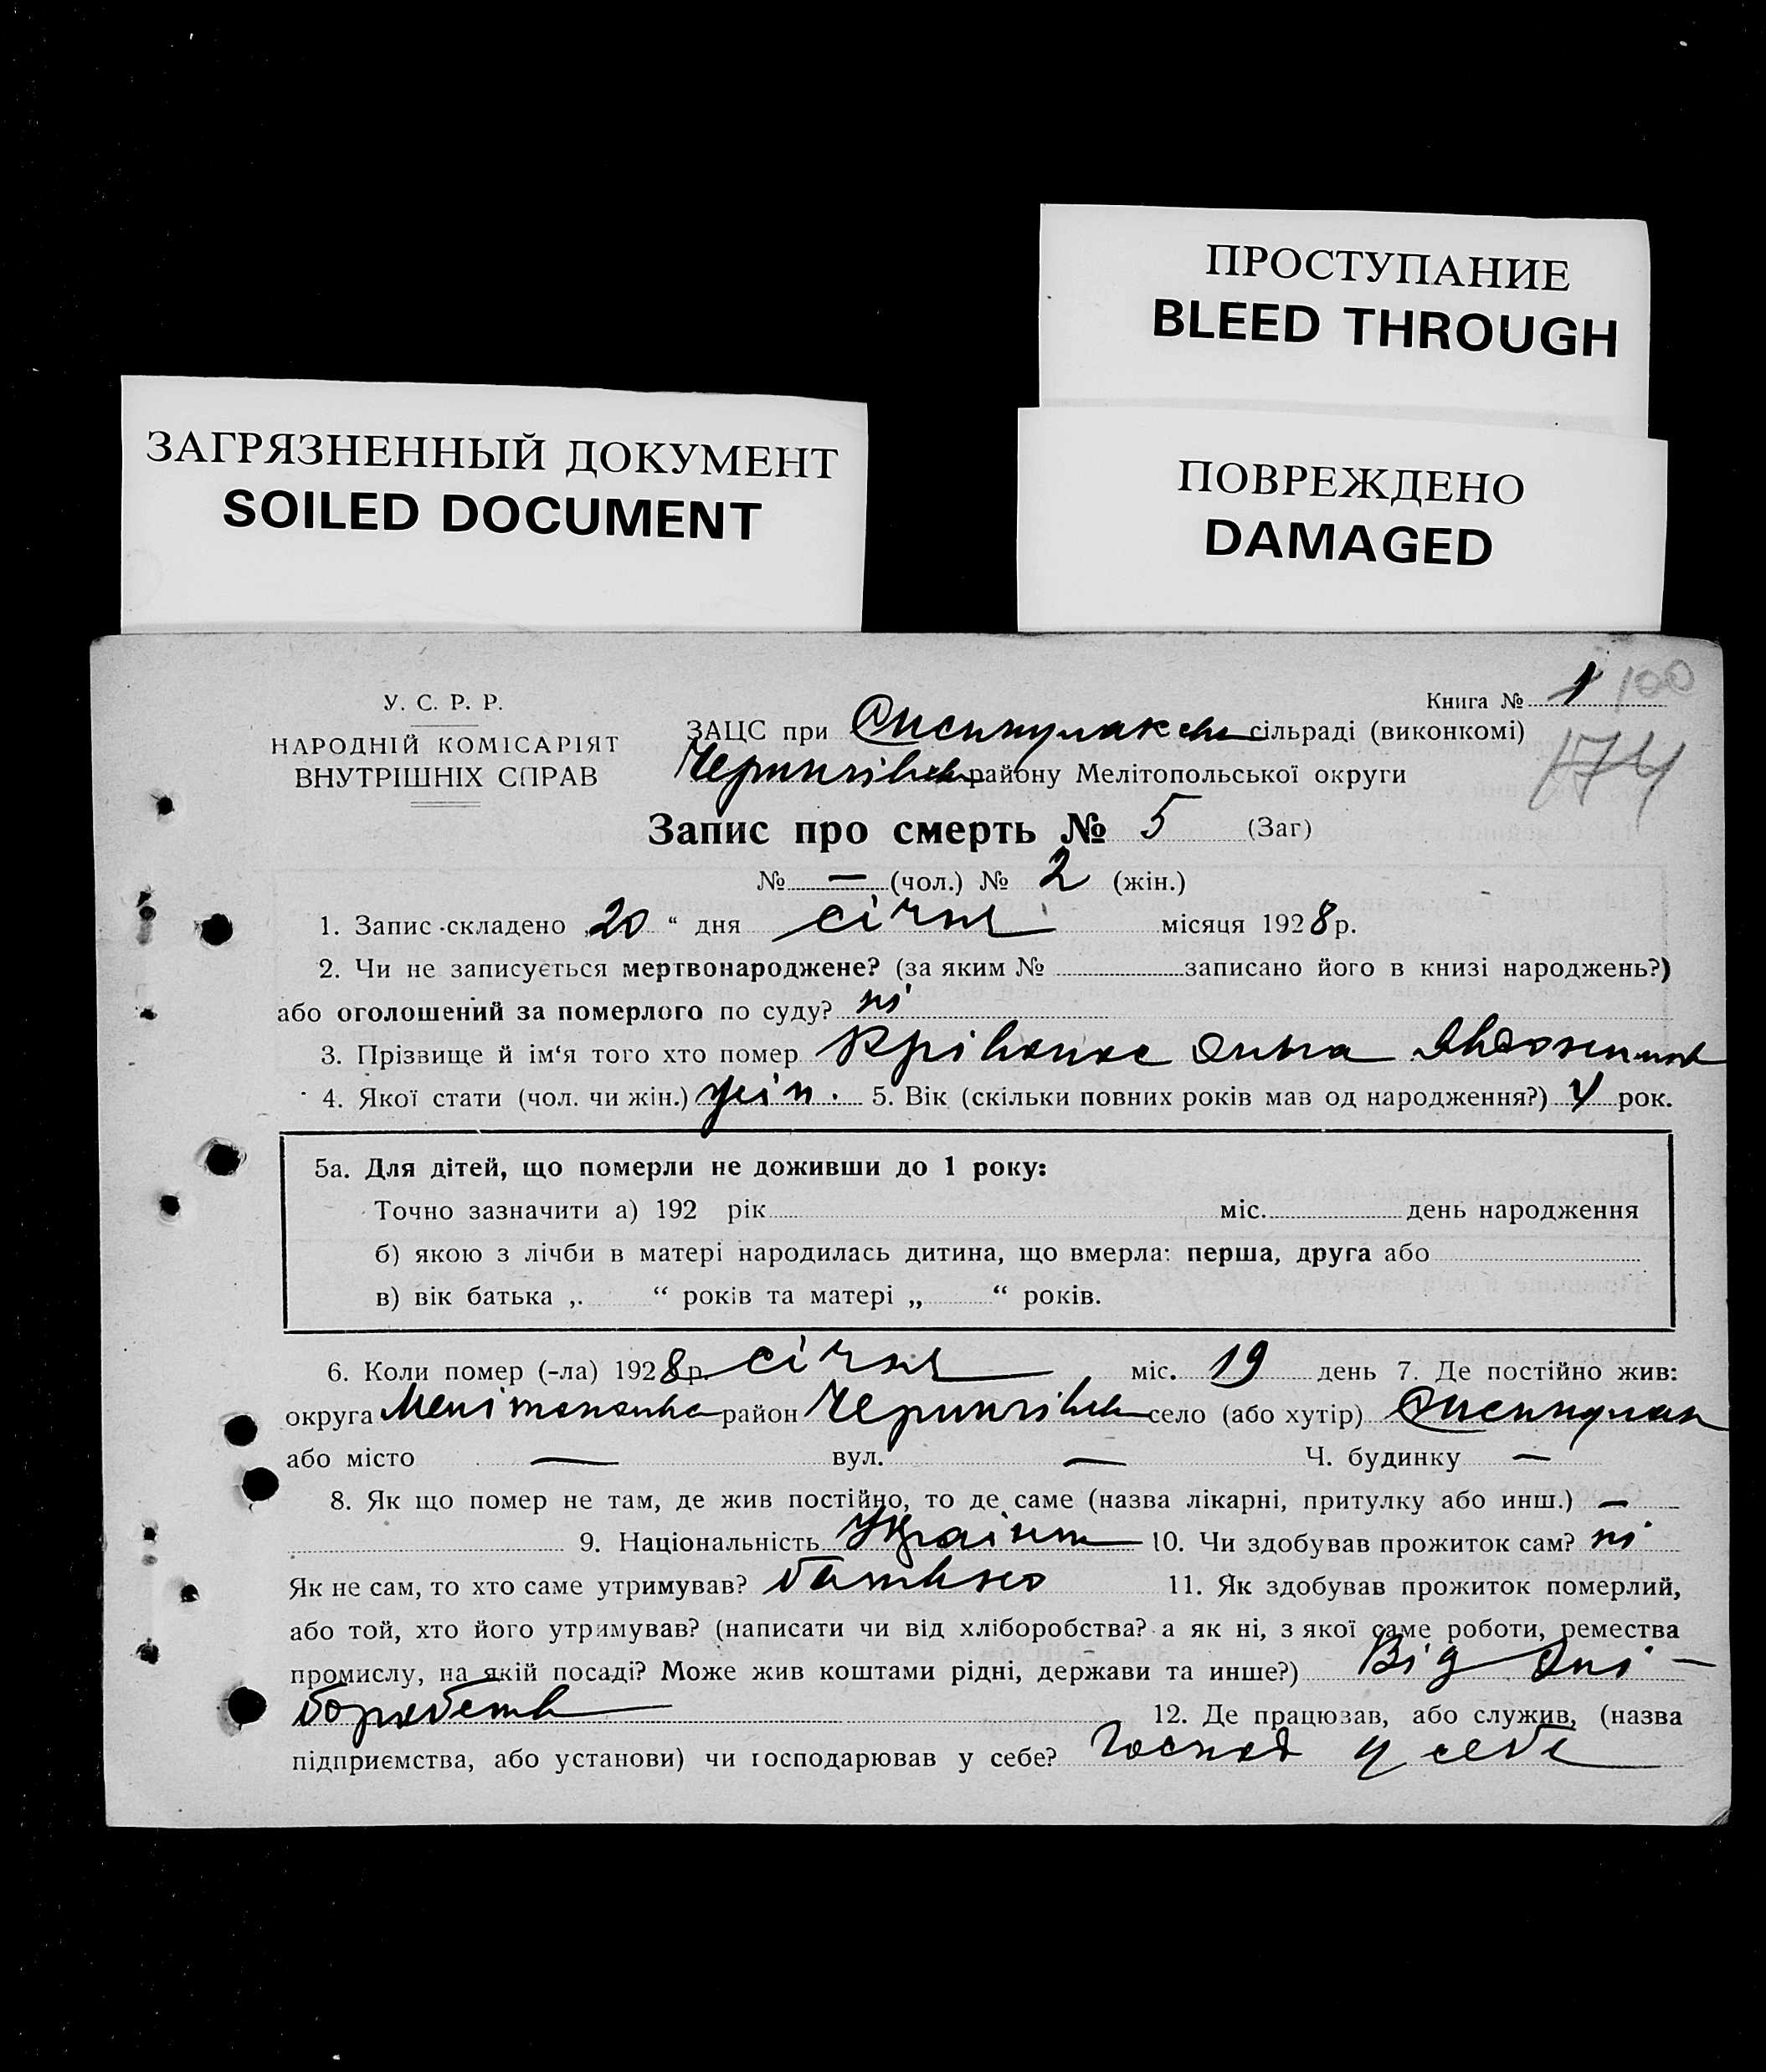 ПРОСТУПАНИЕ
BLEED THROUGH
ЗАГРЯЗНЕННЫЙ ДОКУМЕНТ
SOILED DOCUMENT
ПОВРЕЖДЕНО
DAMAGED
У. С. Р. Р.
НАРОДНІЙ КОМІСАРІЯТ
ВНУТРІШНІХ СПРАВ
Книга № 1 100
174
ЗАЦС при сільраді (виконкомі)
району Мелітопольської округи
Запис про смерть № 5 (Заг)
№ — (чол.) № 2 (жін.)
1. Запис складено „20“ дня січня місяця 1928 р.
2. Чи не записується мертвонароджене? (за яким № записано його в книзі народжень?)
або оголошений за померлого по суду? ні
3. Прізвище й ім‘я того хто помер
4. Якої стати (чол. чи жін.) жін. 5. Вік (скільки повних років мав од народження?) 4 рок.
5а. Для дітей, що померли не доживши до 1 року:
Точно зазначити а) 192 рік міс. день народження
б) якою з лічби в матері народилась дитина, що вмерла: перша, друга або
в) вік батька „ “ років та матері „ “ років.
6. Коли помер (-ла) 1928 р. січня міс. 19 день 7. Де постійно жив:
округа район село (або хутір)
або місто — вул. — Ч. будинку —
8. Як що помер не там, де жив постійно, то де саме (назва лікарні, притулку або инш.) —
9. Національність 10. Чи здобував прожиток сам? ні
Як не сам, то хто саме утримував? батько 11. Як здобував прожиток померлий,
або той, хто його утримував? (написати чи від хліборобства? а як ні, з якої саме роботи, ремества
промислу, на якій посаді? Може жив коштами рідні, держави та инше?) Від хлі-
боробств 12. Де працював, або служив, (назва
підприємства, або установи) чи господарював у себе? Господ у себе